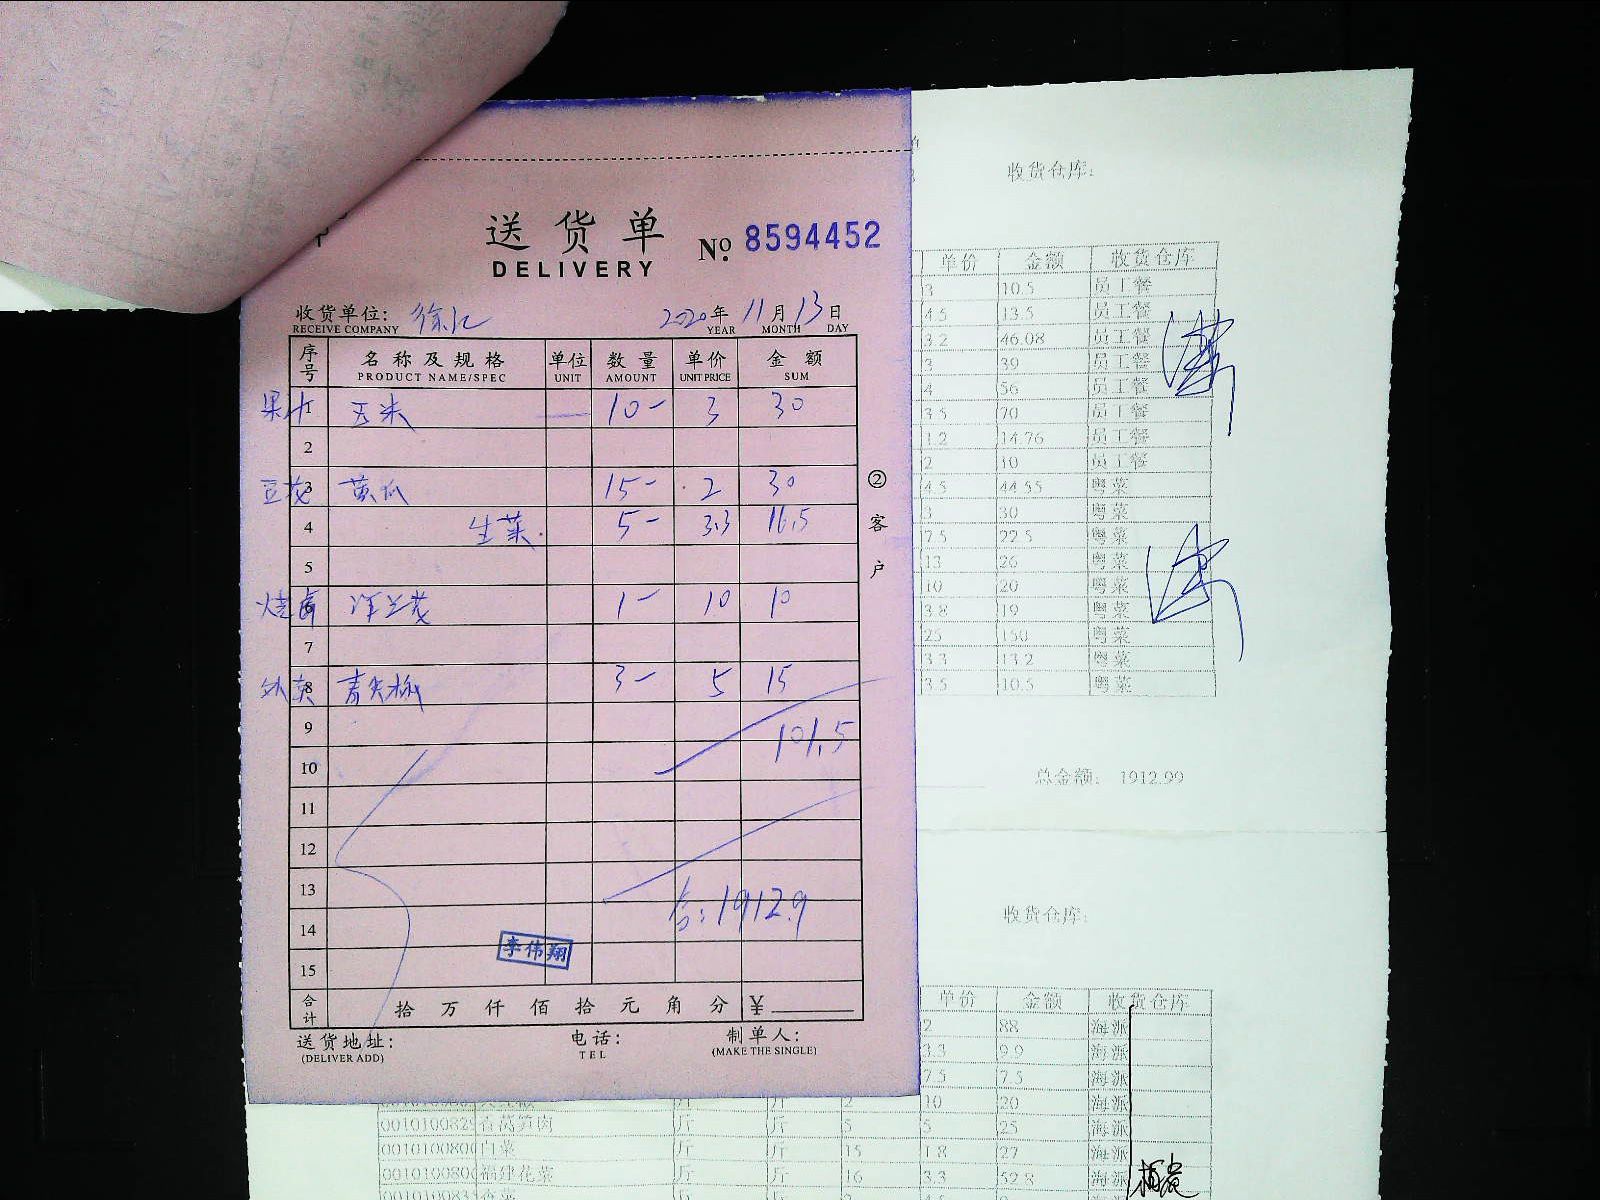 送货单
DELIVERY
No. 8594452
收货单位: 徐汇
RECEIVE COMPANY
2020年 11月 13日
YEAR MONTH DAY
序号 名称及规格 单位 数量 单价 金额
PRODUCT NAME/SPEC UNIT AMOUNT UNIT PRICE SUM
果汁 1 玉米 — 10- 3 30
2
豆花 3 黄瓜 15- 2 30
4 生菜 5- 3.3 16.5
5
洋兰花 1- 10 10
7
外卖 8 青尖椒 3- 5 15
9 101.5
10
11
12
13 合:1912.9
14
李伟翔
15
合计 拾万仟佰拾元角分 ¥
送货地址: 电话: 制单人:
(DELIVER ADD) TEL (MAKE THE SINGLE)
②客户
收货仓库:
单价 金额 收货仓库
3 10.5 员工餐
4.5 13.5 员工餐
3.2 46.08 员工餐
3 39 员工餐
4 56 员工餐
3.5 70 员工餐
1.2 14.76 员工餐
2 10 员工餐
4.5 44.55 粤菜
3 30 粤菜
7.5 22.5 粤菜
13 26 粤菜
10 20 粤菜
3.8 19 粤菜
25 150 粤菜
3.3 13.2 粤菜
3.5 10.5 粤菜
总金额: 1912.99
收货仓库:
单价 金额 收货仓库
2 88 海派
3.3 9.9 海派
7.5 7.5 海派
斤 斤 2 10 20 海派
香莴笋肉 斤 斤 5 5 25 海派
白菜 斤 斤 15 1.8 27 海派
福建花菜 斤 斤 16 3.3 52.8 海派